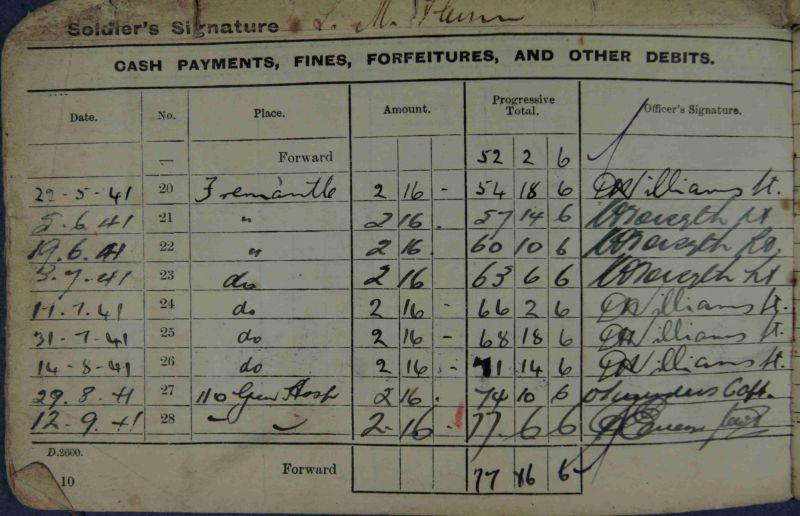 Soldier's Signature L. M.
CASH PAYMENTS, FINES, FORFEITURES, AND OTHER DEBITS.
Date. No. Place. Amount. Progressive Total. Officer's Signature.
Forward 52 2 6
22-5-41 20 Fremantle 2 16 - 54 18 6 Williams Lt.
5.6.41 21 " 2 16. 57 14 6 Forsyth Lt
19.6.41 22 " 2 16. 60 10 6 Forsyth Lt
3-7-41 23 do 2 16 63 6 6 Forsyth Lt
24 do 2 16 - 66 2 6 Williams Lt.
31-7-41 25 do 2 16 - 68 18 6 Williams Lt.
14-8-41 26 do 2 16 - 71 14 6 Williams Lt.
29.8.41 27 110 Gen Hosp 2 16. 74 10 6 Capt.
12.9.41 28 " " 2-16- 77. 6 6
D.2600.
Forward 77 6 6
10